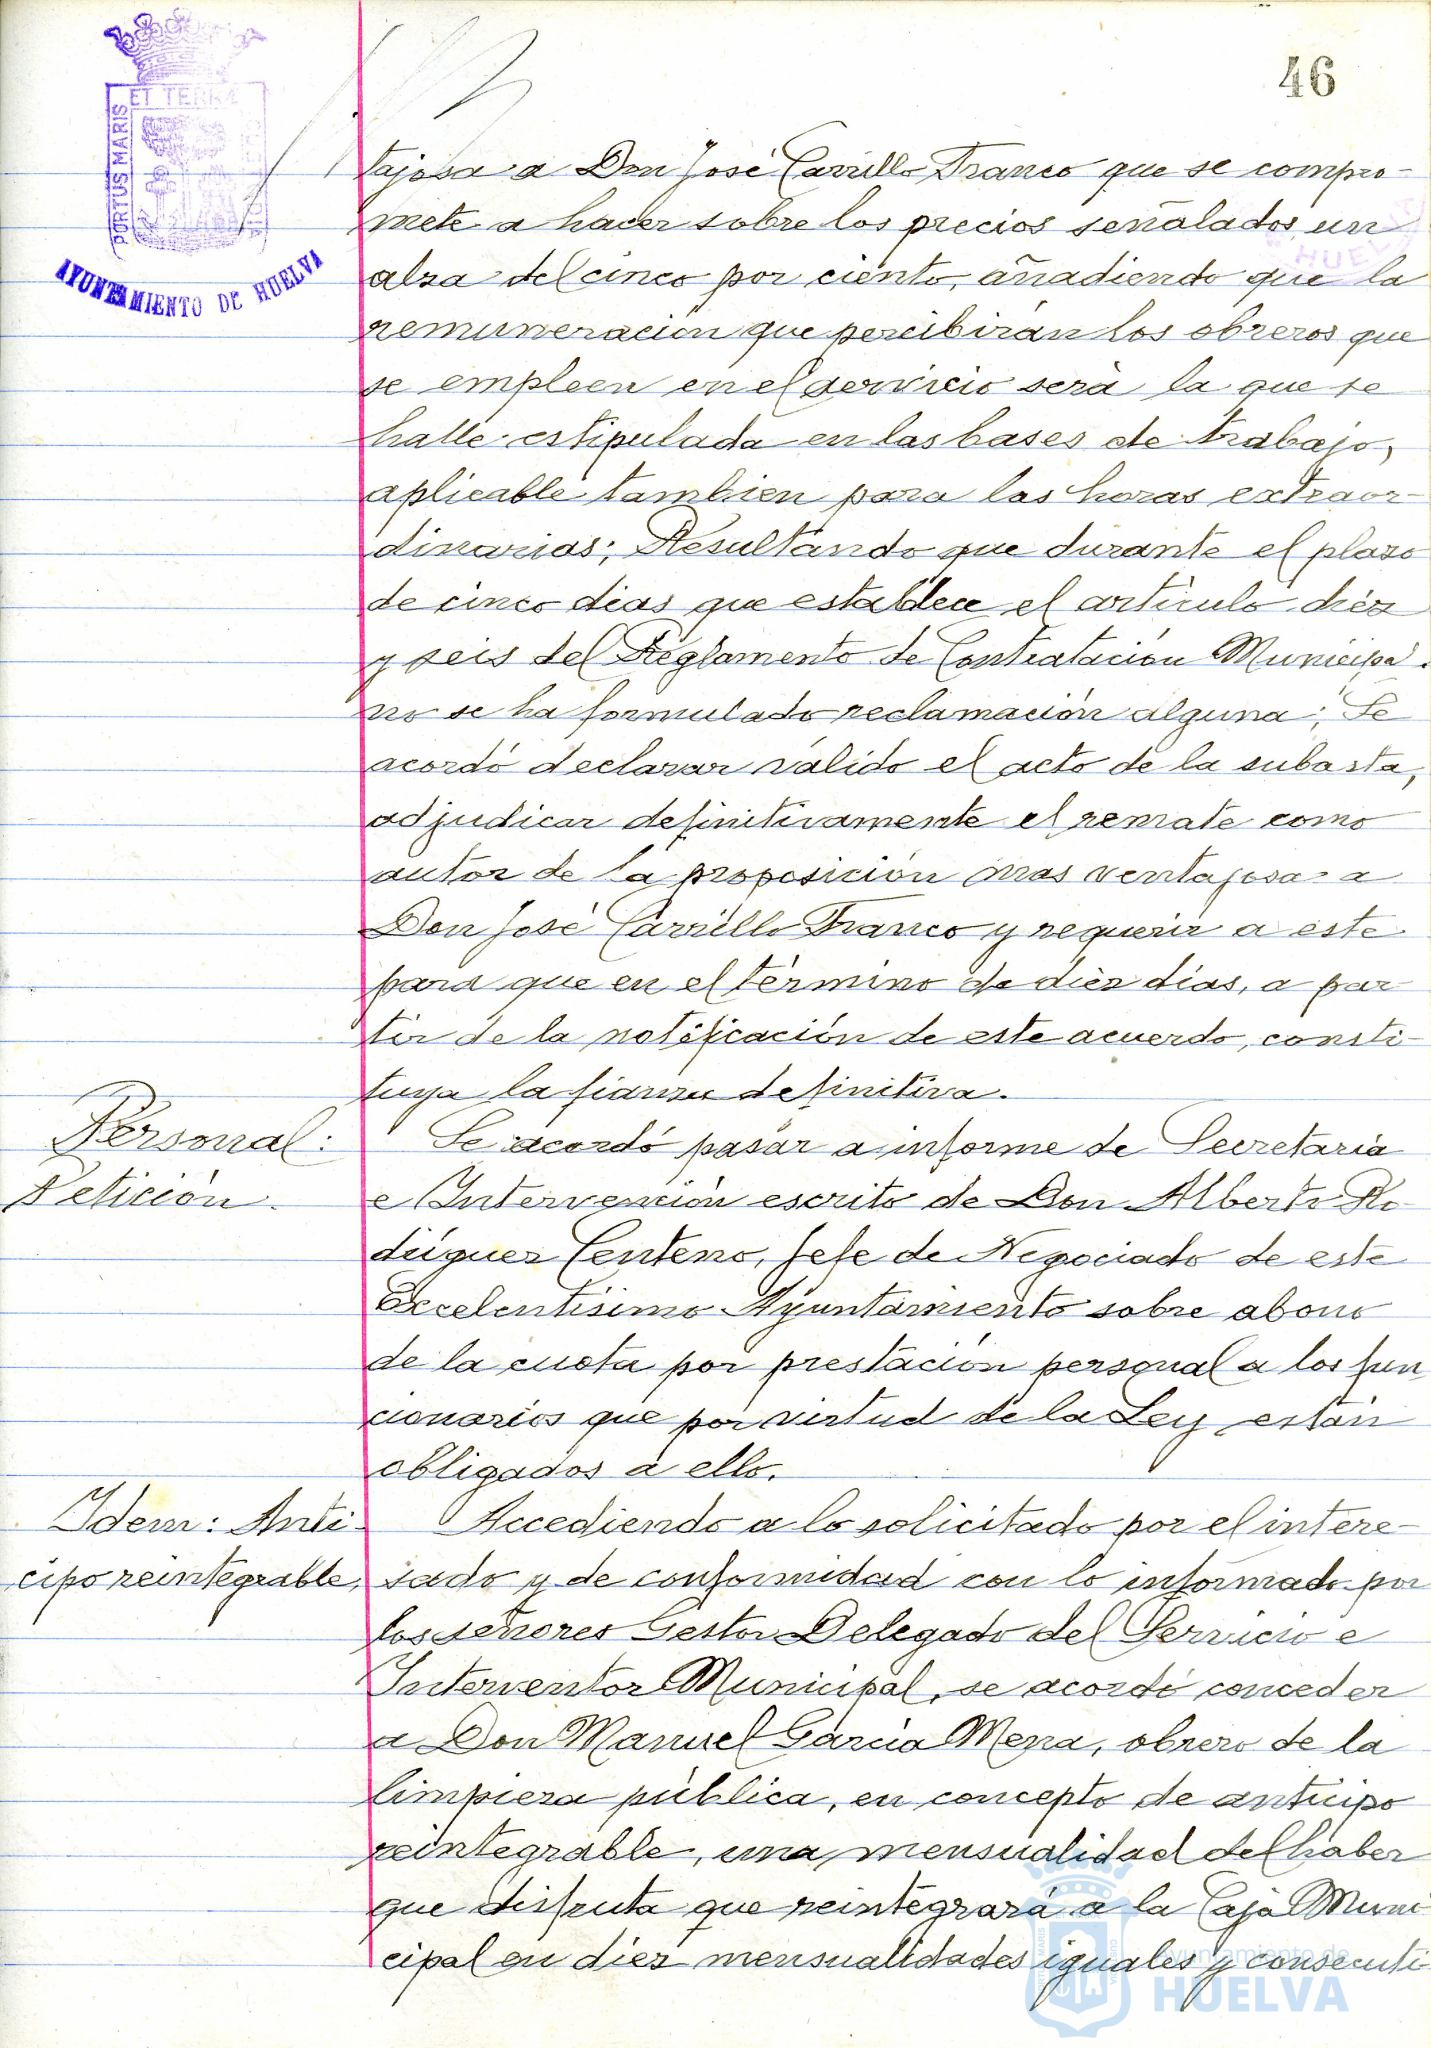 46
ET TERRÆ
PORTUS MARIS
AYUNTAMIENTO DE HUELVA
HUELVA
tajosa a Don José Carrillo Franco que se compro-
mete a hacer sobre los precios señalados un
alza del cinco por ciento, añadiendo que la
remuneración que percibirán los obreros que
se empleen en el servicio será la que se
halle estipulada en las bases de trabajo,
aplicable tambien para las horas extraor-
dinarias; Resultando que durante el plazo
de cinco dias que establece el artículo diéz
y seis del Reglamento de Contratación Municipal
no se ha formulado reclamación alguna; Se
acordó declarar válido el acto de la subasta,
adjudicar definitivamente el remate como
autor de la proposición mas ventajosa a
Don José Carrillo Franco y requerir a este
para que en el término de diéz días, a par
tir de la notificación de este acuerdo, consti-
tuya la fianza definitiva.
Personal:
Petición.
Se acordó pasar a informe de Secretaría
e Intervención escrito de Don Alberto Ro-
dríguez Centeno, Jefe de Negociado de este
Excelentísimo Ayuntamiento sobre abono
de la cuota por prestación personal a los fun
cionarios que por virtud de la Ley están
obligados a ello.
Idem: Anti-
cipo reintegrable,
Accediendo a lo solicitado por el intere-
sado y de conformidad con lo informado por
los señores Gestor Delegado del Servicio e
Interventor Municipal, se acordó conceder
a Don Manuel García Mena, obrero de la
limpieza pública, en concepto de anticipo
reintegrable, una mensualidad del haber
que disfruta que reintegrará a la Caja Muni
cipal en diez mensualidades iguales y consecuti-
Ayuntamiento de
HUELVA